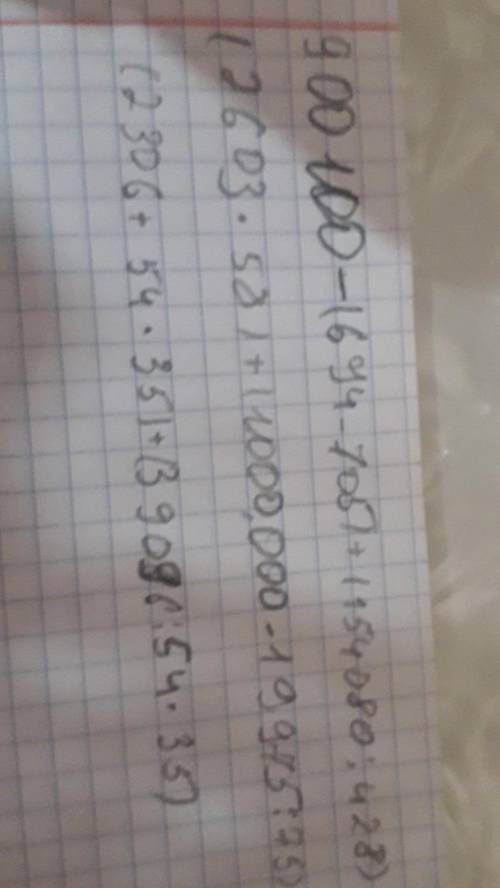 900 100-(694-705)+(154080:428)
(2603·52)+(1000,000-19975:75)
(2306+54·35)+(39096:54·35)